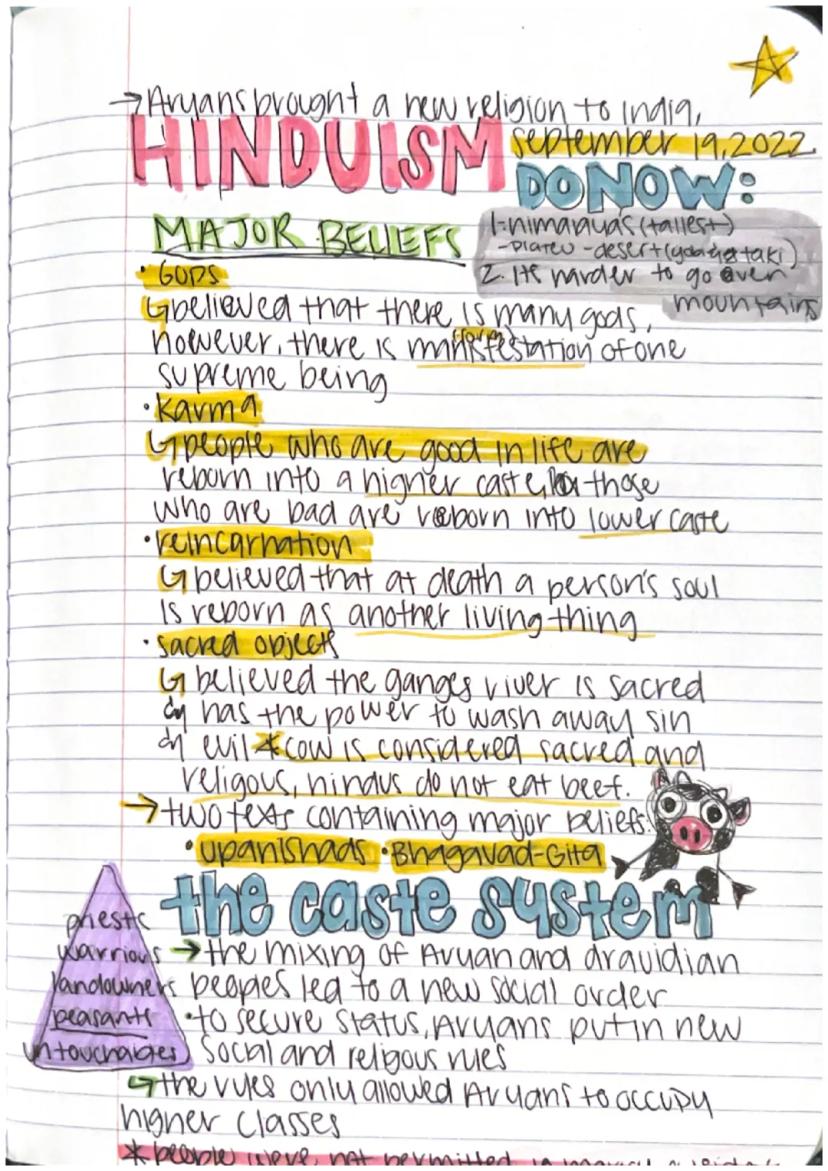 →Aryans brought a new religion to India,
HINDUISM
september 19, 2022
DO NOW:
1-himalayas (tallest)
-plateu -desert
2. Its harder to go over
mountains
MAJOR BELIEFS
• GODS
↳believed that there is many gods,
however, there is manifestation of one
supreme being
• karma
↳people who are good in life are
reborn into a higher caste, those
who are bad are reborn into lower caste
• reincarnation
↳believed that at death a person's soul
is reborn as another living thing
• sacred objects
↳ believed the ganges river is sacred
& has the power to wash away sin
& evil *cow is considered sacred and
religous, hindus do not eat beef.
→two texts containing major beliefs:
• upanishads • Bhagavad-Gita
the caste system
priests
warriors
landowners
peasants
untouchables
→the mixing of Aryan and dravidian
peoples led to a new social order
•to secure status, Aryans put in new
social and religous rules
↳the rules only allowed Aryans to occupy
higher classes
* people were not permitted